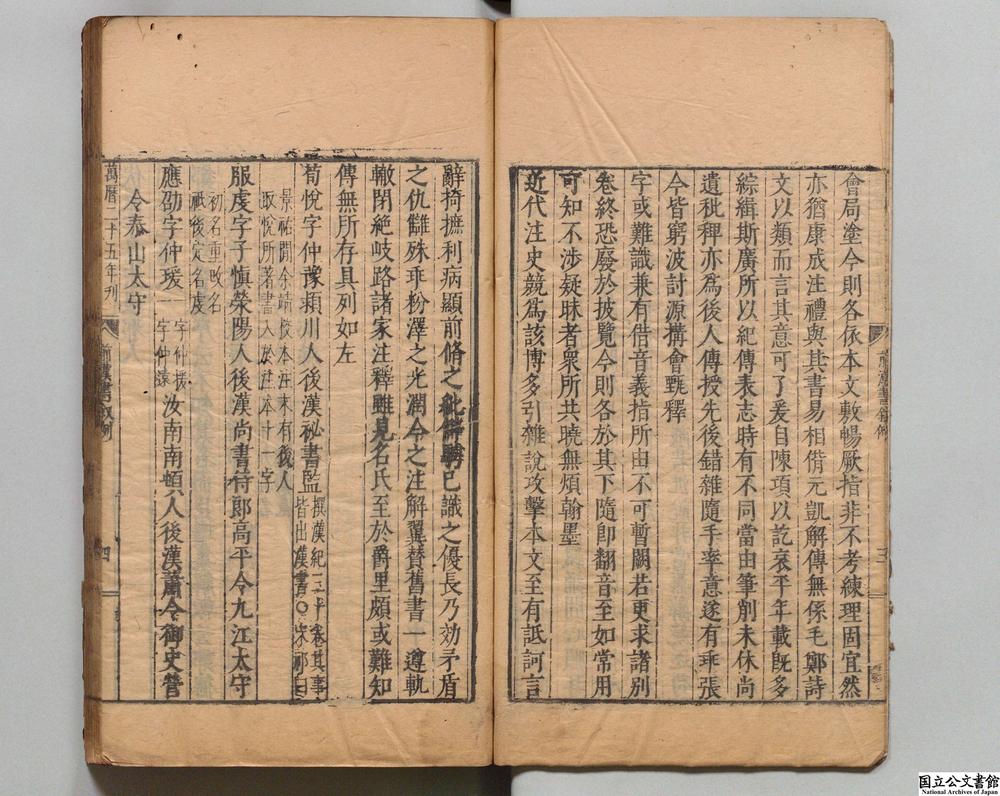 會局塗今則各依本文敷暢厥指非不考練理固宜然
亦猶康成注禮與其書易相偝元凱解傳無係毛鄭詩
文以類而言其意可了爰自陳項以訖哀平年載既多
綜緝斯廣所以紀傳表志時有不同當由筆削未休尚
遺秕稗亦爲後人傳授先後錯雜隨手率意遂有乖張
今皆窮波討源搆會甄釋
字或難識兼有借音義指所由不可暫闕若更求諸別
卷終恐廢於披覽今則各於其下隨即翻音至如常用
可知不涉疑昧者衆所共曉無煩翰墨
近代注史競爲該博多引雜說攻擊本文至有詆訶言
辭掎摭利病顯前脩之紕僻騁己識之優長乃効矛盾
之仇讎殊乖粉澤之光潤今之注解翼贊舊書一遵軌
轍閉絶岐路諸家注釋雖見名氏至於爵里頗或難知
傳無所存具列如左
荀悅字仲豫潁川人後漢祕書監
撰漢紀三十卷其事
皆出漢書〇宋祁曰
景祐間余靖校本注末有後人
取悅所著書入於注本十一字
服虔字子慎滎陽人後漢尚書侍郎高平令九江太守
初名重改名
祇後定名虔
應劭字仲瑗
一字仲援
一字仲遠
汝南南頓人後漢蕭令御史營
令泰山太守
萬曆二十五年刊
前漢書叙例
四
国立公文書館
National Archives of Japan